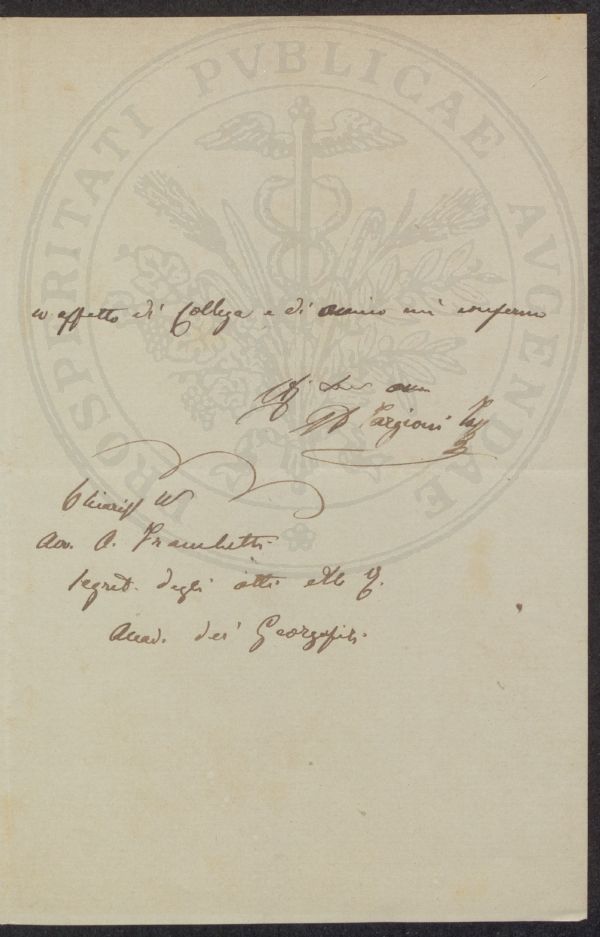 PROSPERITATI PVBLICAE AVGENDAE
affetto di Collega e di amico mi confermo
Targioni
Chiariss
Avv. A. Franchetti
Segret. degli atti
Accad. dei Georgofili